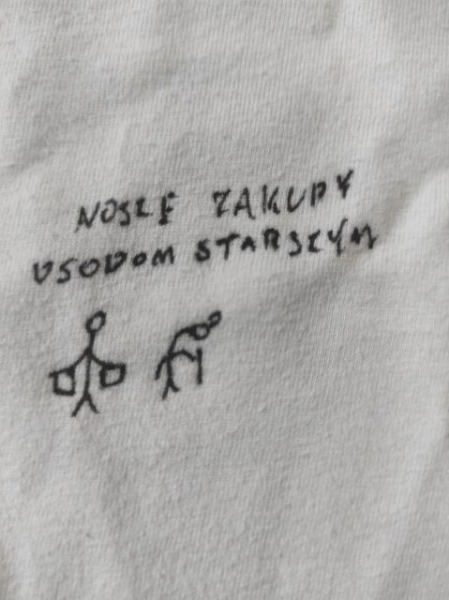 NOSZĘ ZAKUPY
OSOBOM STARSZYM